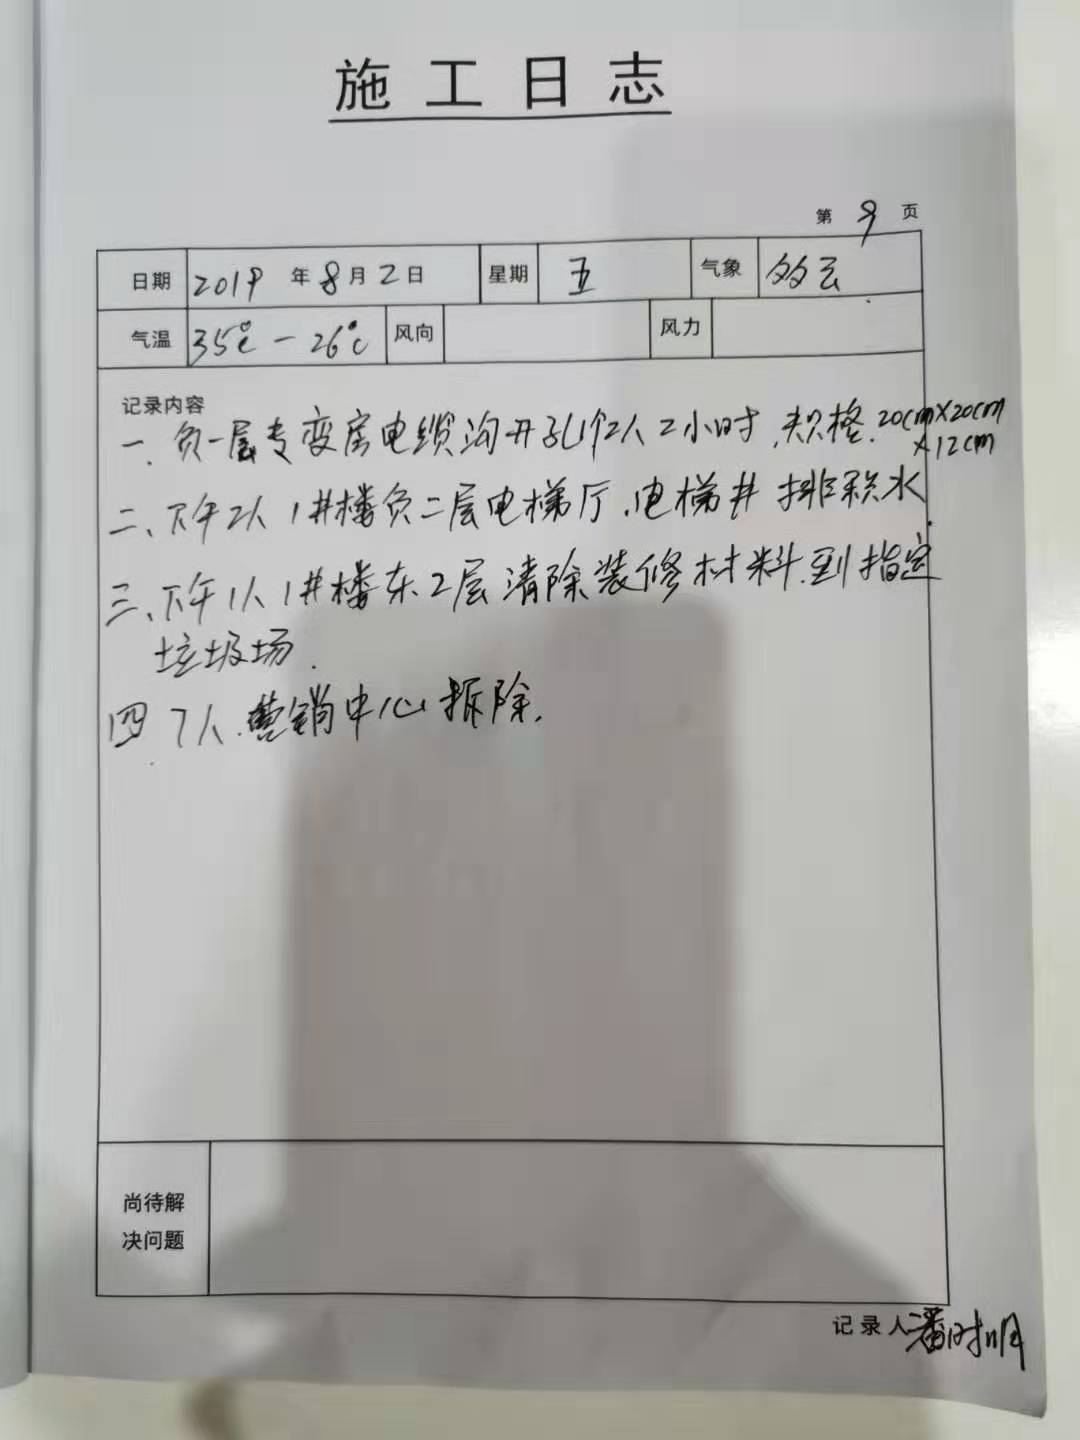 施工日志
第 9 页
日期 2019 年 8 月 2 日 星期 五 气象 多云
气温 35℃-26℃ 风向 风力
记录内容
一、负一层专变房电缆沟开孔1个2人2小时,规格.20cm×20cm
×12cm
二、下午2人1#楼负二层电梯厅、电梯井排积水.
三、下午1人1#楼东2层清除装修材料.到指定
垃圾场.
四 7人.营销中心拆除.
尚待解
决问题
记录人潘时明